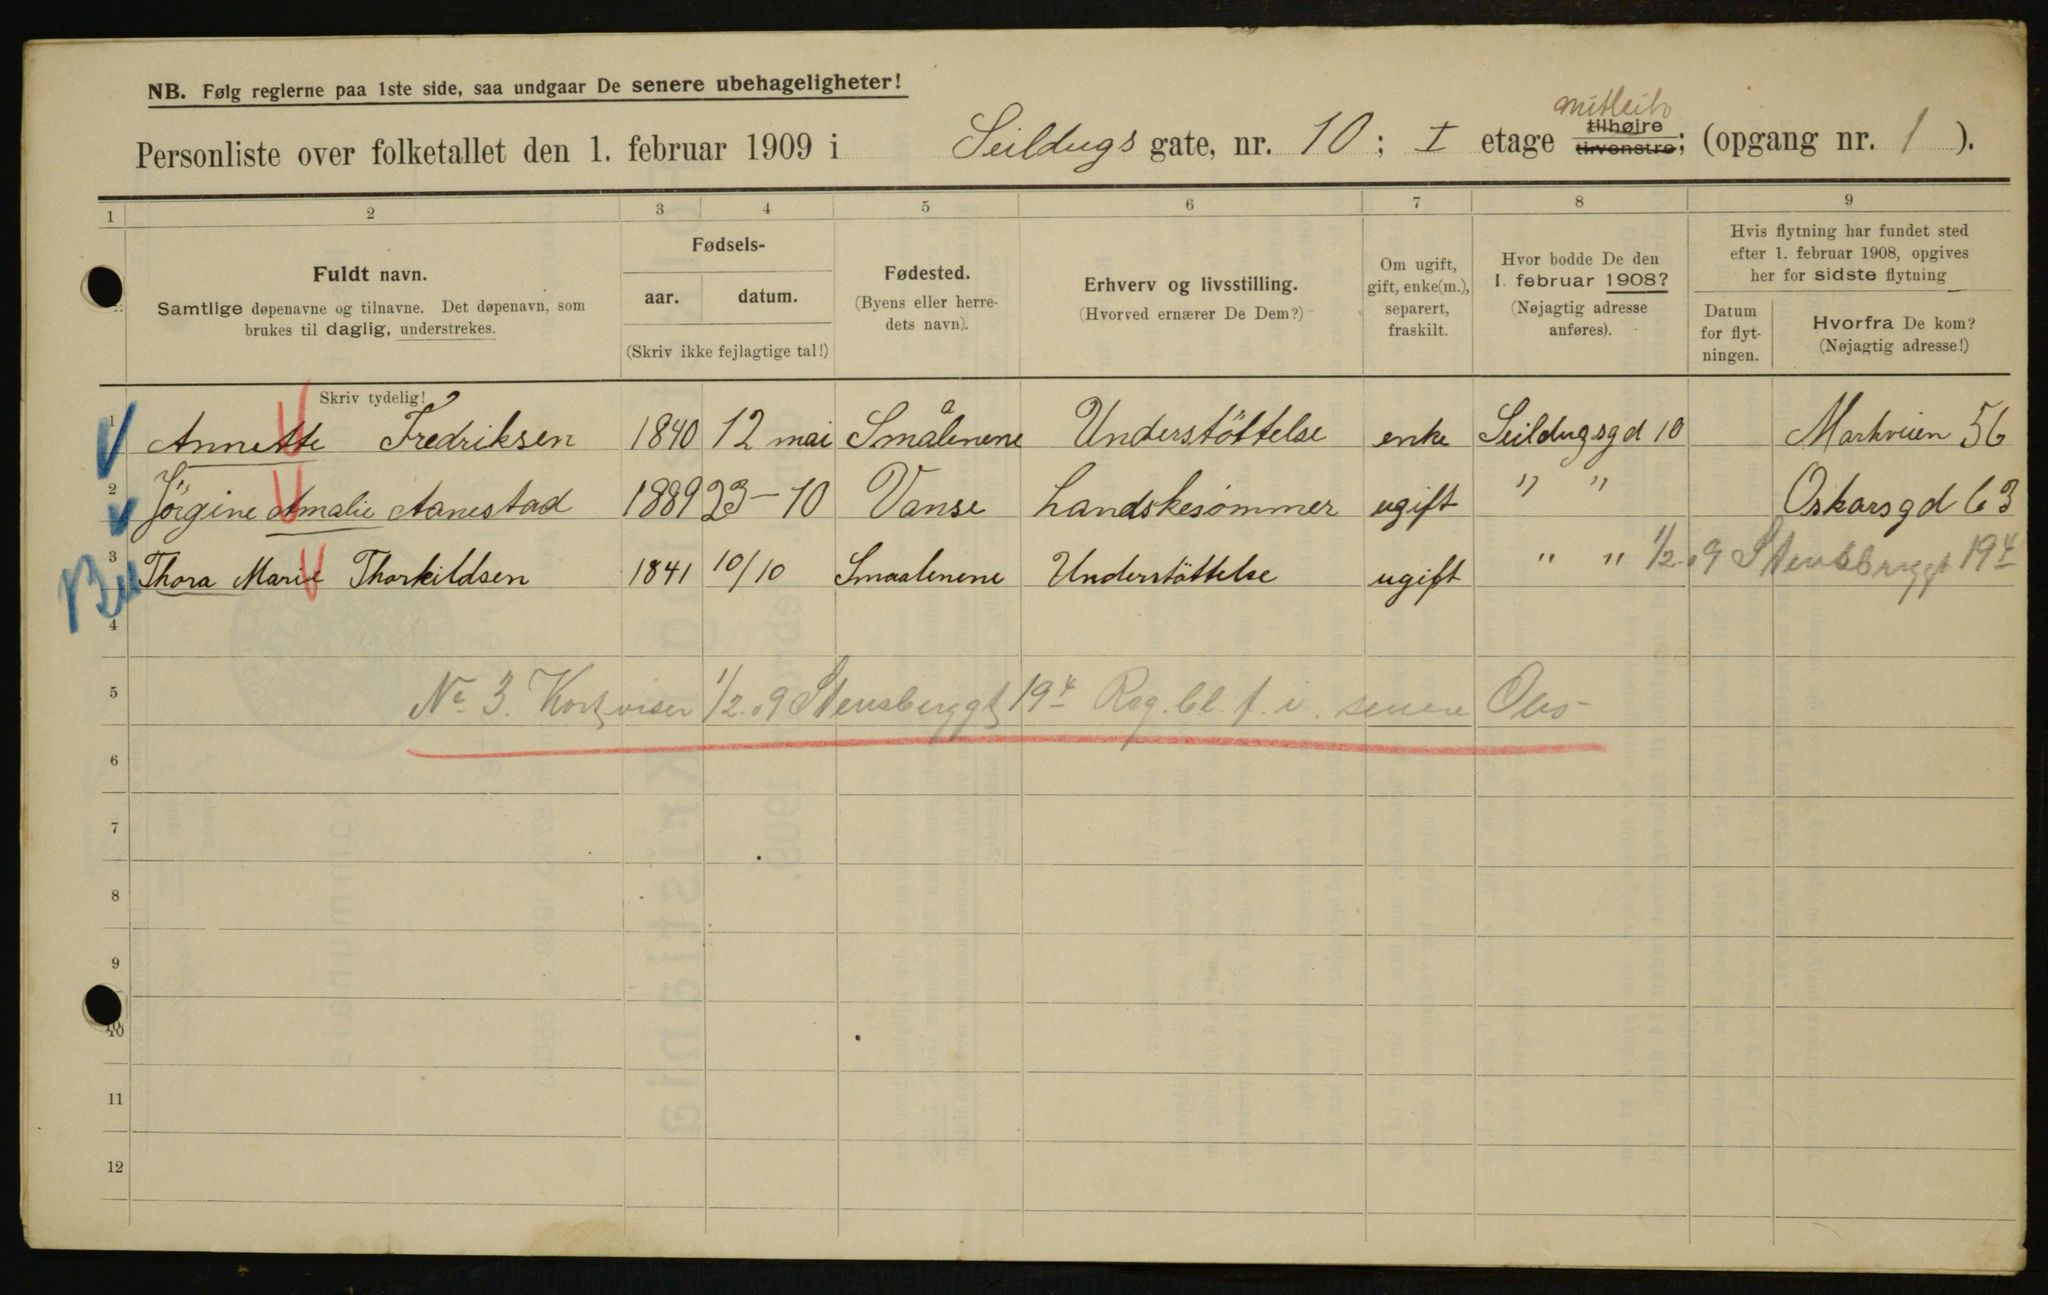 NB. Følg reglerne paa 1ste side, saa undgaar De senere ubehageligheter!
Personliste over folketallet den 1. februar 1909 i Seildugs gate, nr. 10; I etage tilhøjre tilvenstre; (opgang nr. 1).
1 2 3 4 5 6 7 8 9
Fuldt navn.
Samtlige døpenavne og tilnavne. Det døpenavn, som
brukes til daglig, understrekes.
Fødsels-
aar. datum.
(Skriv ikke fejlagtige tal!)
Fødested.
(Byens eller herre-
dets navn).
Erhverv og livsstilling.
(Hvorved ernærer De Dem?)
Om ugift,
gift, enke(m.),
separert,
fraskilt.
Hvor bodde De den
1. februar 1908?
(Nøjagtig adresse
anføres).
Hvis flytning har fundet sted
efter 1. februar 1908, opgives
her for sidste flytning
Datum
for flyt-
ningen.
Hvorfra De kom?
(Nøjagtig adresse!)
Skriv tydelig!
1 Annette Fredriksen 1840 12 mai Smålenene Understöttelse enke Seildugsgd 10 Markveien 56
2 Jörgine Amalie Aanestad 1889 23-10 Vanse Handskesömmer ugift " " Oskarsgd 63
3 Thora Marie Thorkildsen 1841 10/10 Smaalenene Understöttelse ugift " " 1/2.09 Stensberggt 19 4
4
5 No 3. Kort viser 1/2.09 Stensberggt 19 4 Reg. bl. f. i. senere Obs
6
7
8
9
10
11
12